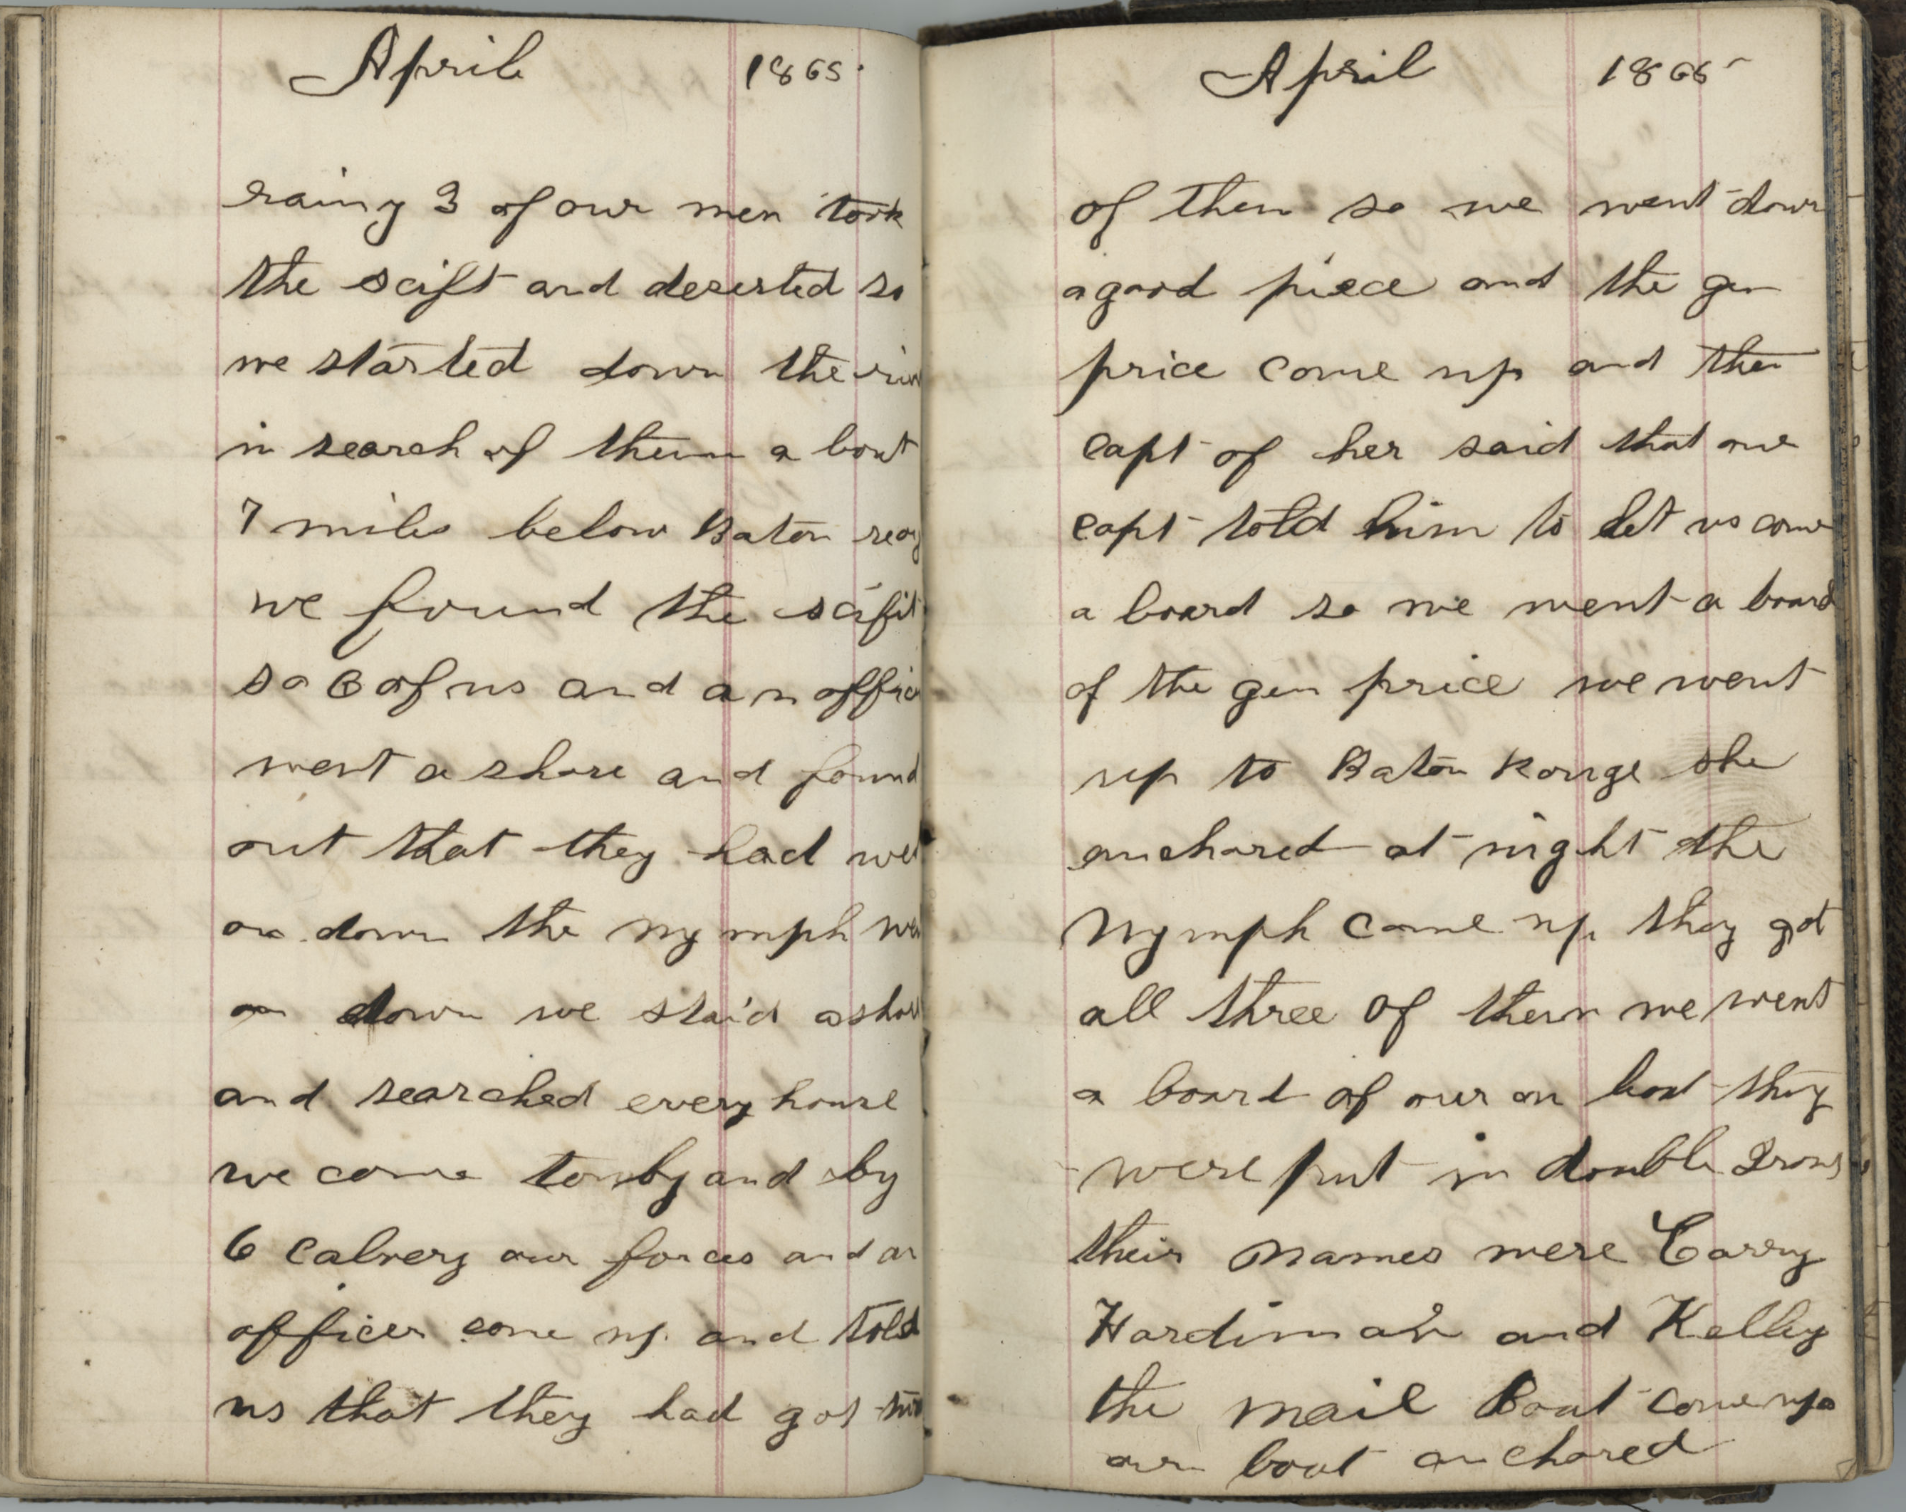 April 1865.
rainy 3 of our men took
the scift and deserted so
we started down the riv
in search of them a bout
7 miles below Baton roug
we found the scifit
so 6 of us and an offic
went a shore and found
out that they had wen
on down the nymph wen
on down we staid ashor
and searched every house
we come to by and by
6 calvery our forces and an
officer come up and told
us that they had got two
April 1865
of them so we went down
a good piece and the gen
price come up and the
capt of her said that our
capt told him to let us come
a board so we went a board
of the gen price we went
up to Baton Rouge she
anchared at night the
Nymph come up they got
all three of them we went
a board of our on boat they
were put in double Irons
their names were Carry
Hardiman and Kelley
the mail Boat come up
our boat anchared